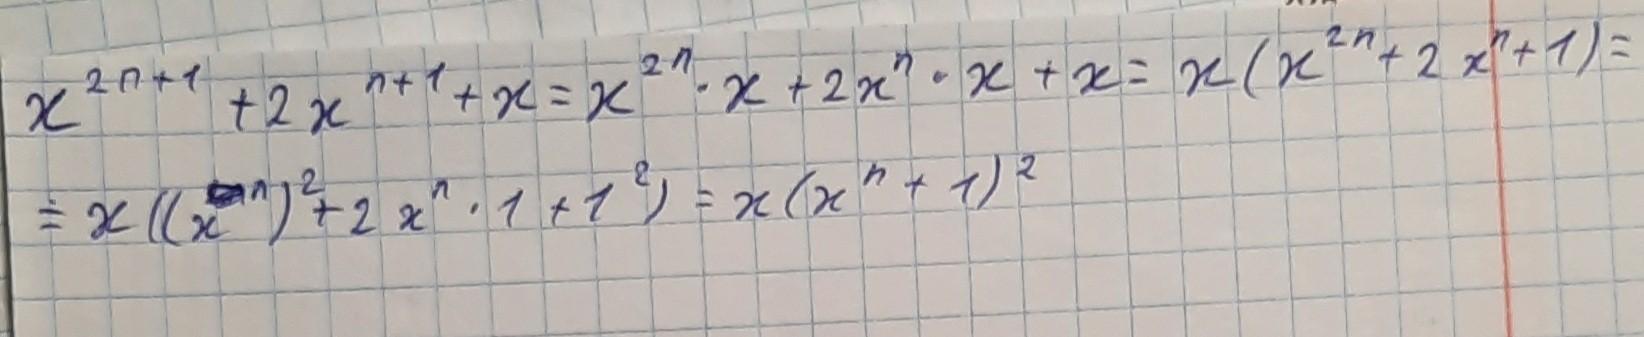 x^{2n+1} + 2x^{n+1} + x = x^{2n} · x + 2x^n · x + x = x(x^{2n} + 2x^n + 1) =
= x((x^n)^2 + 2x^n · 1 + 1^2) = x(x^n + 1)^2